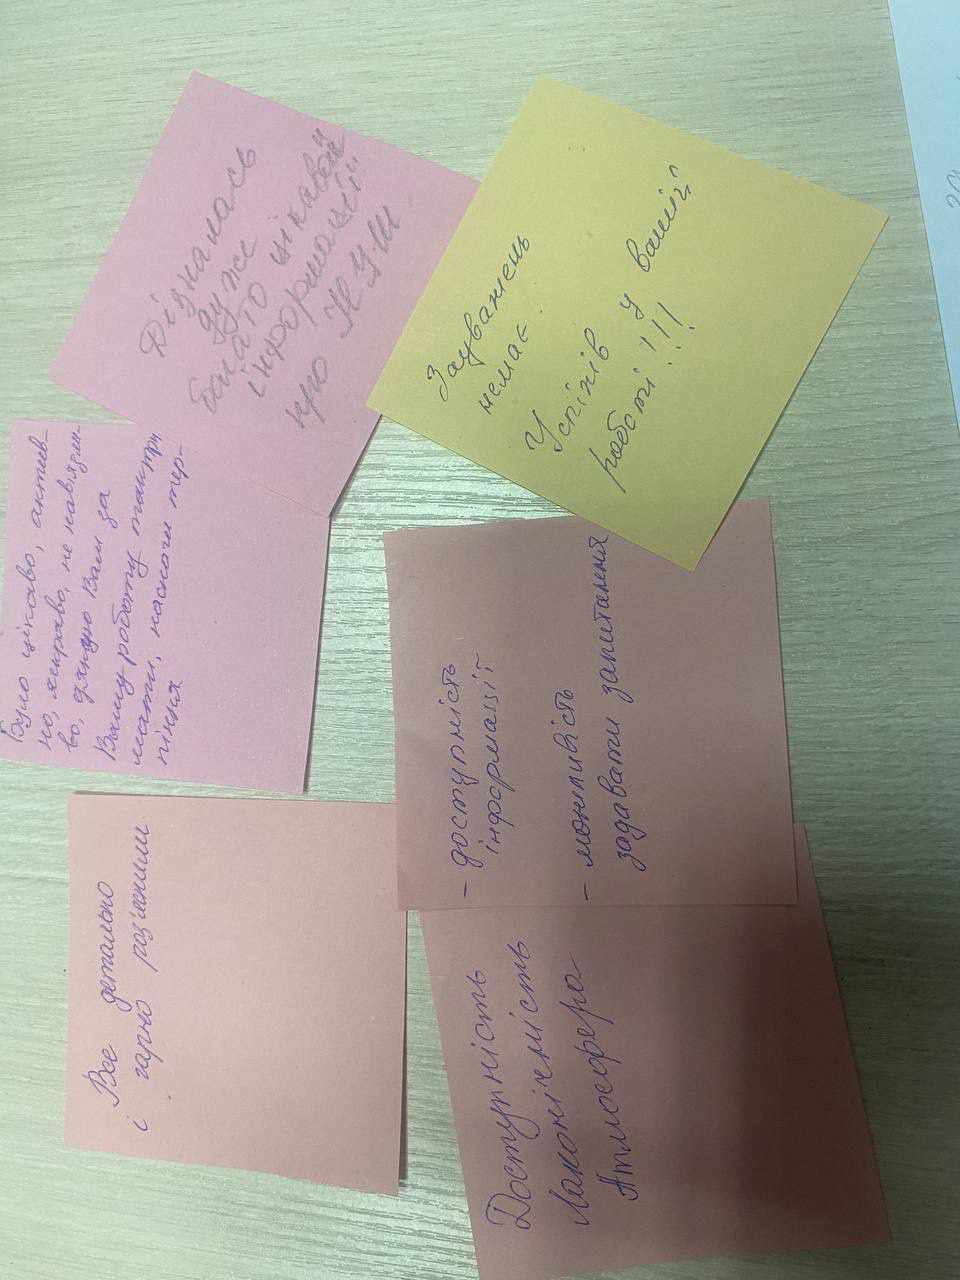 Дізналась
дуже
багато цікавої
інформації
про НУШ
Зауважень
немає.
Успіхів у вашій
роботі!!!
Було цікаво, актив-
но, яскраво, не навязли-
во, дякую Вам за
Вашу роботу
піння
- доступність
інформації
- можливість
задавати запитання
Все детально
і гарно розяснили
Доступність
Лаконічність
Атмосфера